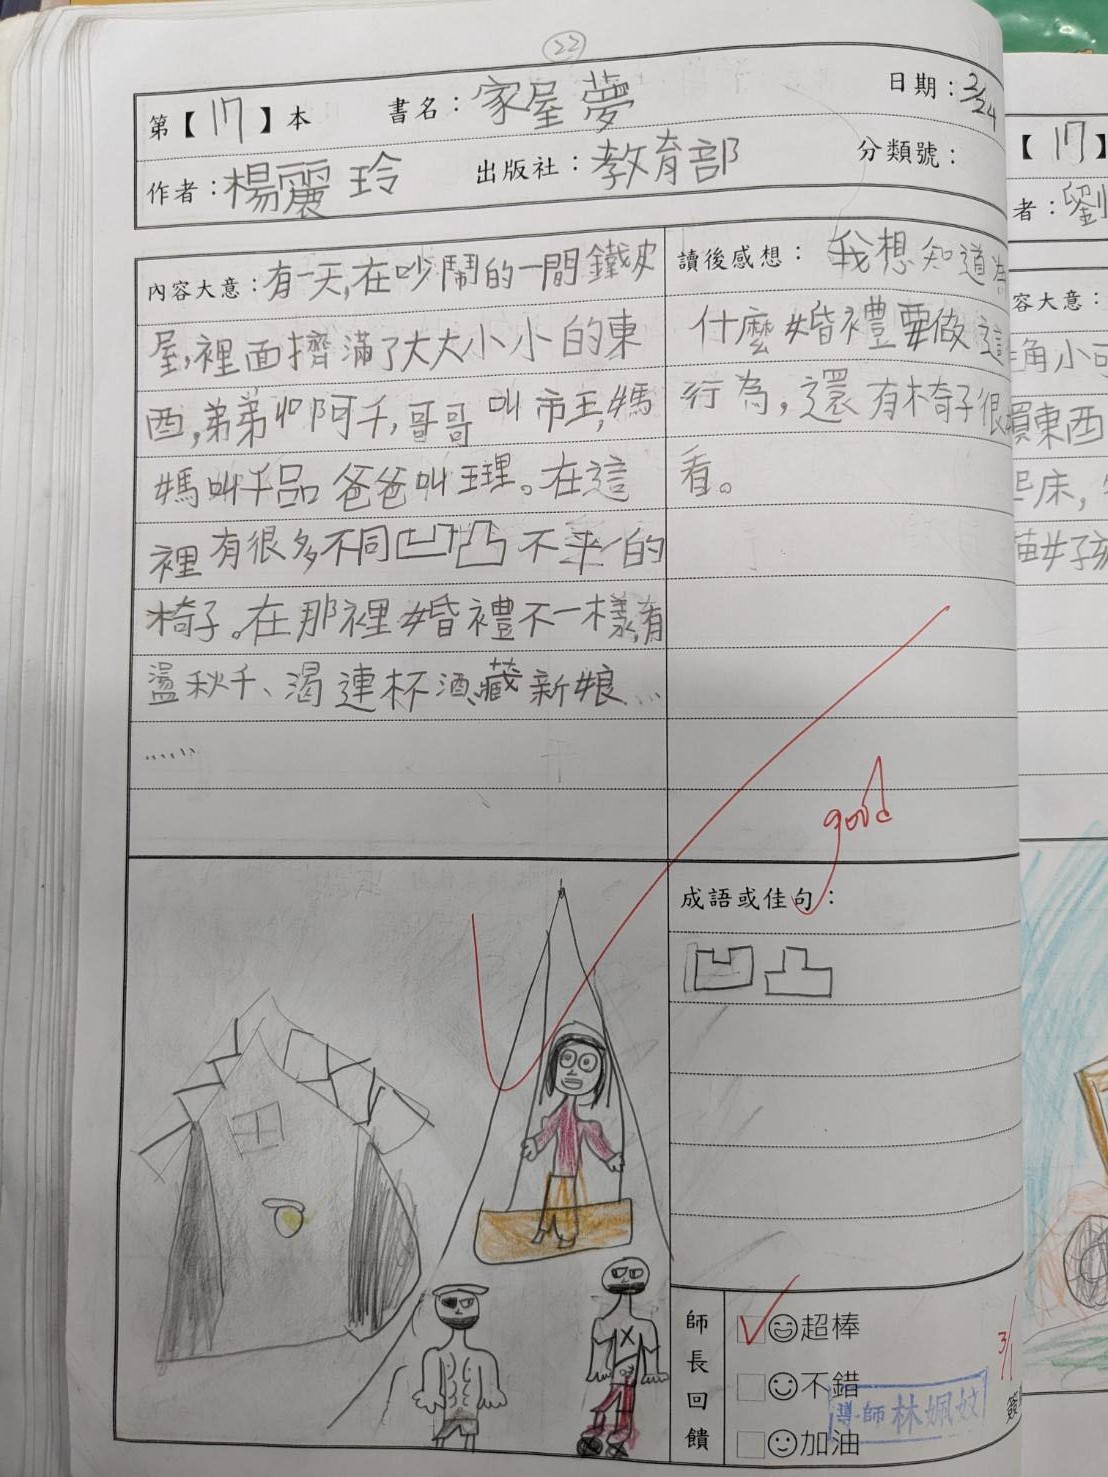 22
第【17】本 書名：家屋夢 日期：3/24
作者：楊麗玲 出版社：教育部 分類號：
內容大意：有一天,在吵鬧的一間鐵皮
屋,裡面擠滿了大大小小的東
西,弟弟叫阿千,哥哥叫市王,媽
媽叫千品爸爸叫王理。在這
裡有很多不同凹凸不平的
椅子。在那裡婚禮不一樣,有
盪秋千、渴連杯酒、藏新娘…
……
讀後感想：我想知道為
什麼婚禮要做這
行為,還有椅子很
看。
good
成語或佳句：
凹凸
師長回饋
超棒
不錯
加油
導師林姵妏
3/1
【17】
者：劉
容大意：
角小可
東西
起床,
苗女孩